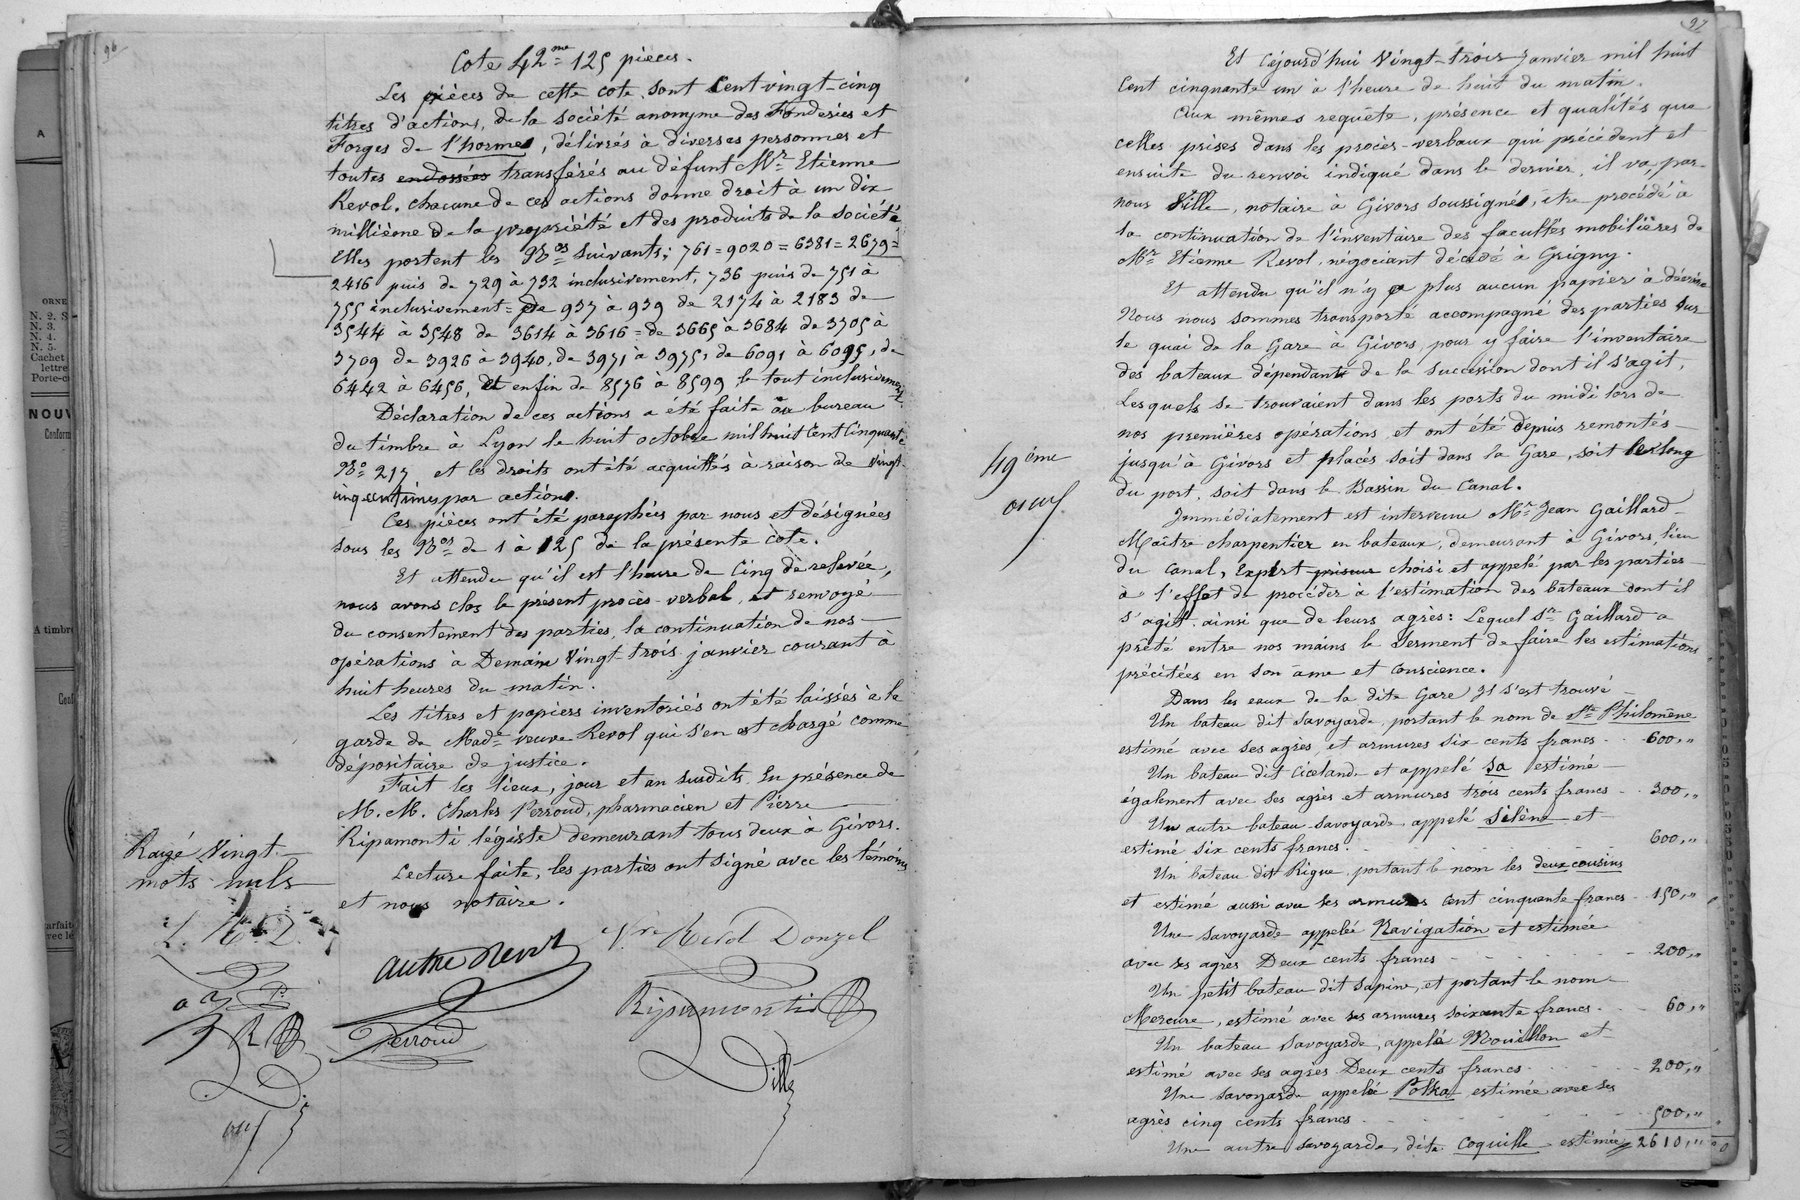 96
Cote 42me 125 pièces.
Les pièces de cette cote sont Cent vingt-cinq
titres d'actions, de la société anonyme des Fonderies et
Forges de l'horme, délivrés à diverses personnes et
toutes endossées transférés au défunt Mr Etienne
Revol. Chacune de ces actions donne droit à un dix
millième de la propriété et des produits de la société
Elles portent les Nos suivants; 761=9020=6381=2679=
2416 puis de 729 à 732 inclusivement, 736 puis de 751 à
755 inclusivement = de 937 à 939 de 2174 à 2183 de
3544 à 3548 de 3614 à 3616 = de 3665 à 3684 de 3705 à
3709 de 3926 à 3940, de 3971 à 3975, de 6091 à 6095, de
6442 à 6456, et enfin de 8576 à 8599 le tout inclusivement.
Déclaration de ces actions a été faite au bureau
du timbre à Lyon le huit octobre mil huit Cent Cinquante
No 217 et les droits ont été acquittés à raison de vingt-
cinq centimes par action.
Ces pièces ont été paraphées par nous et désignées
sous les Nos de 1 à 125 de la présente côte.
Et attendu qu'il est l'heure de Cinq de relevée,
nous avons clos le présent procès-verbal, et renvoyé
du consentement des parties, la continuation de nos
opérations à Demain Vingt-trois janvier courant à
huit heures du matin.
Les titres et papiers inventoriés ont été laissés à la
garde de Made veuve Revol qui s'en est chargé comme
dépositaire de justice.
Fait les lieux, jour et an susdits, En présence de
M. M. Charles Perroud, pharmacien et Pierre
Ripamonti légiste demeurant tous deux à Givors.
Lecture faite, les parties ont signé avec les témoins
et nous notaire.
Rayé Vingt
mots nuls
autre Revol
Vve Revol Donzel
Perroud
Ripamonti
Dille
97
Et Cejourd'hui Vingt-trois Janvier mil huit
Cent cinquante un à l'heure de huit du matin.
Aux mêmes requête, présence et qualités que
celles prises dans les procès-verbaux qui précèdent et
ensuite du renvoi indiqué dans le dernier, il va, par
nous Dille, notaire à Givors soussigné, être procédé à
la continuation de l'inventaire des facultés mobilières de
Mr Etienne Revol, négociant décédé à Grigny.
Et attendu qu'il n'y a plus aucun papier à décrire
Nous nous sommes transporté accompagné des parties sur
le quai de la Gare à Givors pour y faire l'inventaire
des bateaux dépendant de la succession dont il s'agit,
Lesquels se trouvaient dans les ports du midi lors de
nos premières opérations, et ont été depuis remontés
jusqu'à Givors et placés soit dans la Gare, soit le long
du port, soit dans le Bassin du Canal.
49ème
Immédiatement est intervenu Mr Jean Gaillard
Maître charpentier en bateaux, demeurant à Givors, lieu
du Canal, Expert priseur choisi et appelé par les parties
à l'effet de procéder à l'estimation des bateaux dont il
s'agit, ainsi que de leurs agrès: Lequel Sr Gaillard a
prêté entre nos mains le Serment de faire les estimations
précitées en son âme et Conscience.
Dans les eaux de la dite Gare Il s'est trouvé
Un bateau dit Savoyarde, portant le nom de Ste Philomène
estimé avec ses agrès, et armures six cents francs - - 600,"
Un bateau dit Ciselande et appelé Sa estimé
également avec ses agrès et armures trois cents francs - - 300,"
Un autre bateau Savoyarde appelé Silène et
estimé six cents francs. 600,"
Un bateau dit Rigue, portant le nom les deux cousins
et estimé aussi avec ses armures Cent cinquante francs - 150,"
Une Savoyarde appelée Navigation et estimée
avec ses agrès Deux cents francs - - - 200,"
Un petit bateau dit Sapine, et portant le nom
Mercure, estimé avec ses armures soixante francs. - - 60,"
Un bateau Savoyarde, appelé Mouillon et
estimé avec ses agrès Deux cents francs - - - 200,"
Une Savoyarde appelée Polka estimée avec ses
agrès cinq cents francs - - - 500,"
Une autre Savoyarde, dite Coquille estimée 2610,"